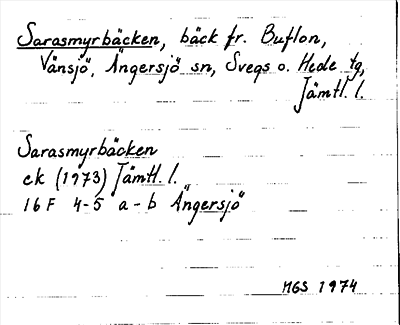 Sarasmyrbäcken, bäck fr. Buflon,
Vänsjö, Ängersjö sn, Svegs o. Hede tg,
Jämtl. l.
Sarasmyrbäcken
ek (1973) Jämtl. l.
16 F 4-5 a-b Ängersjö
MGS 1974